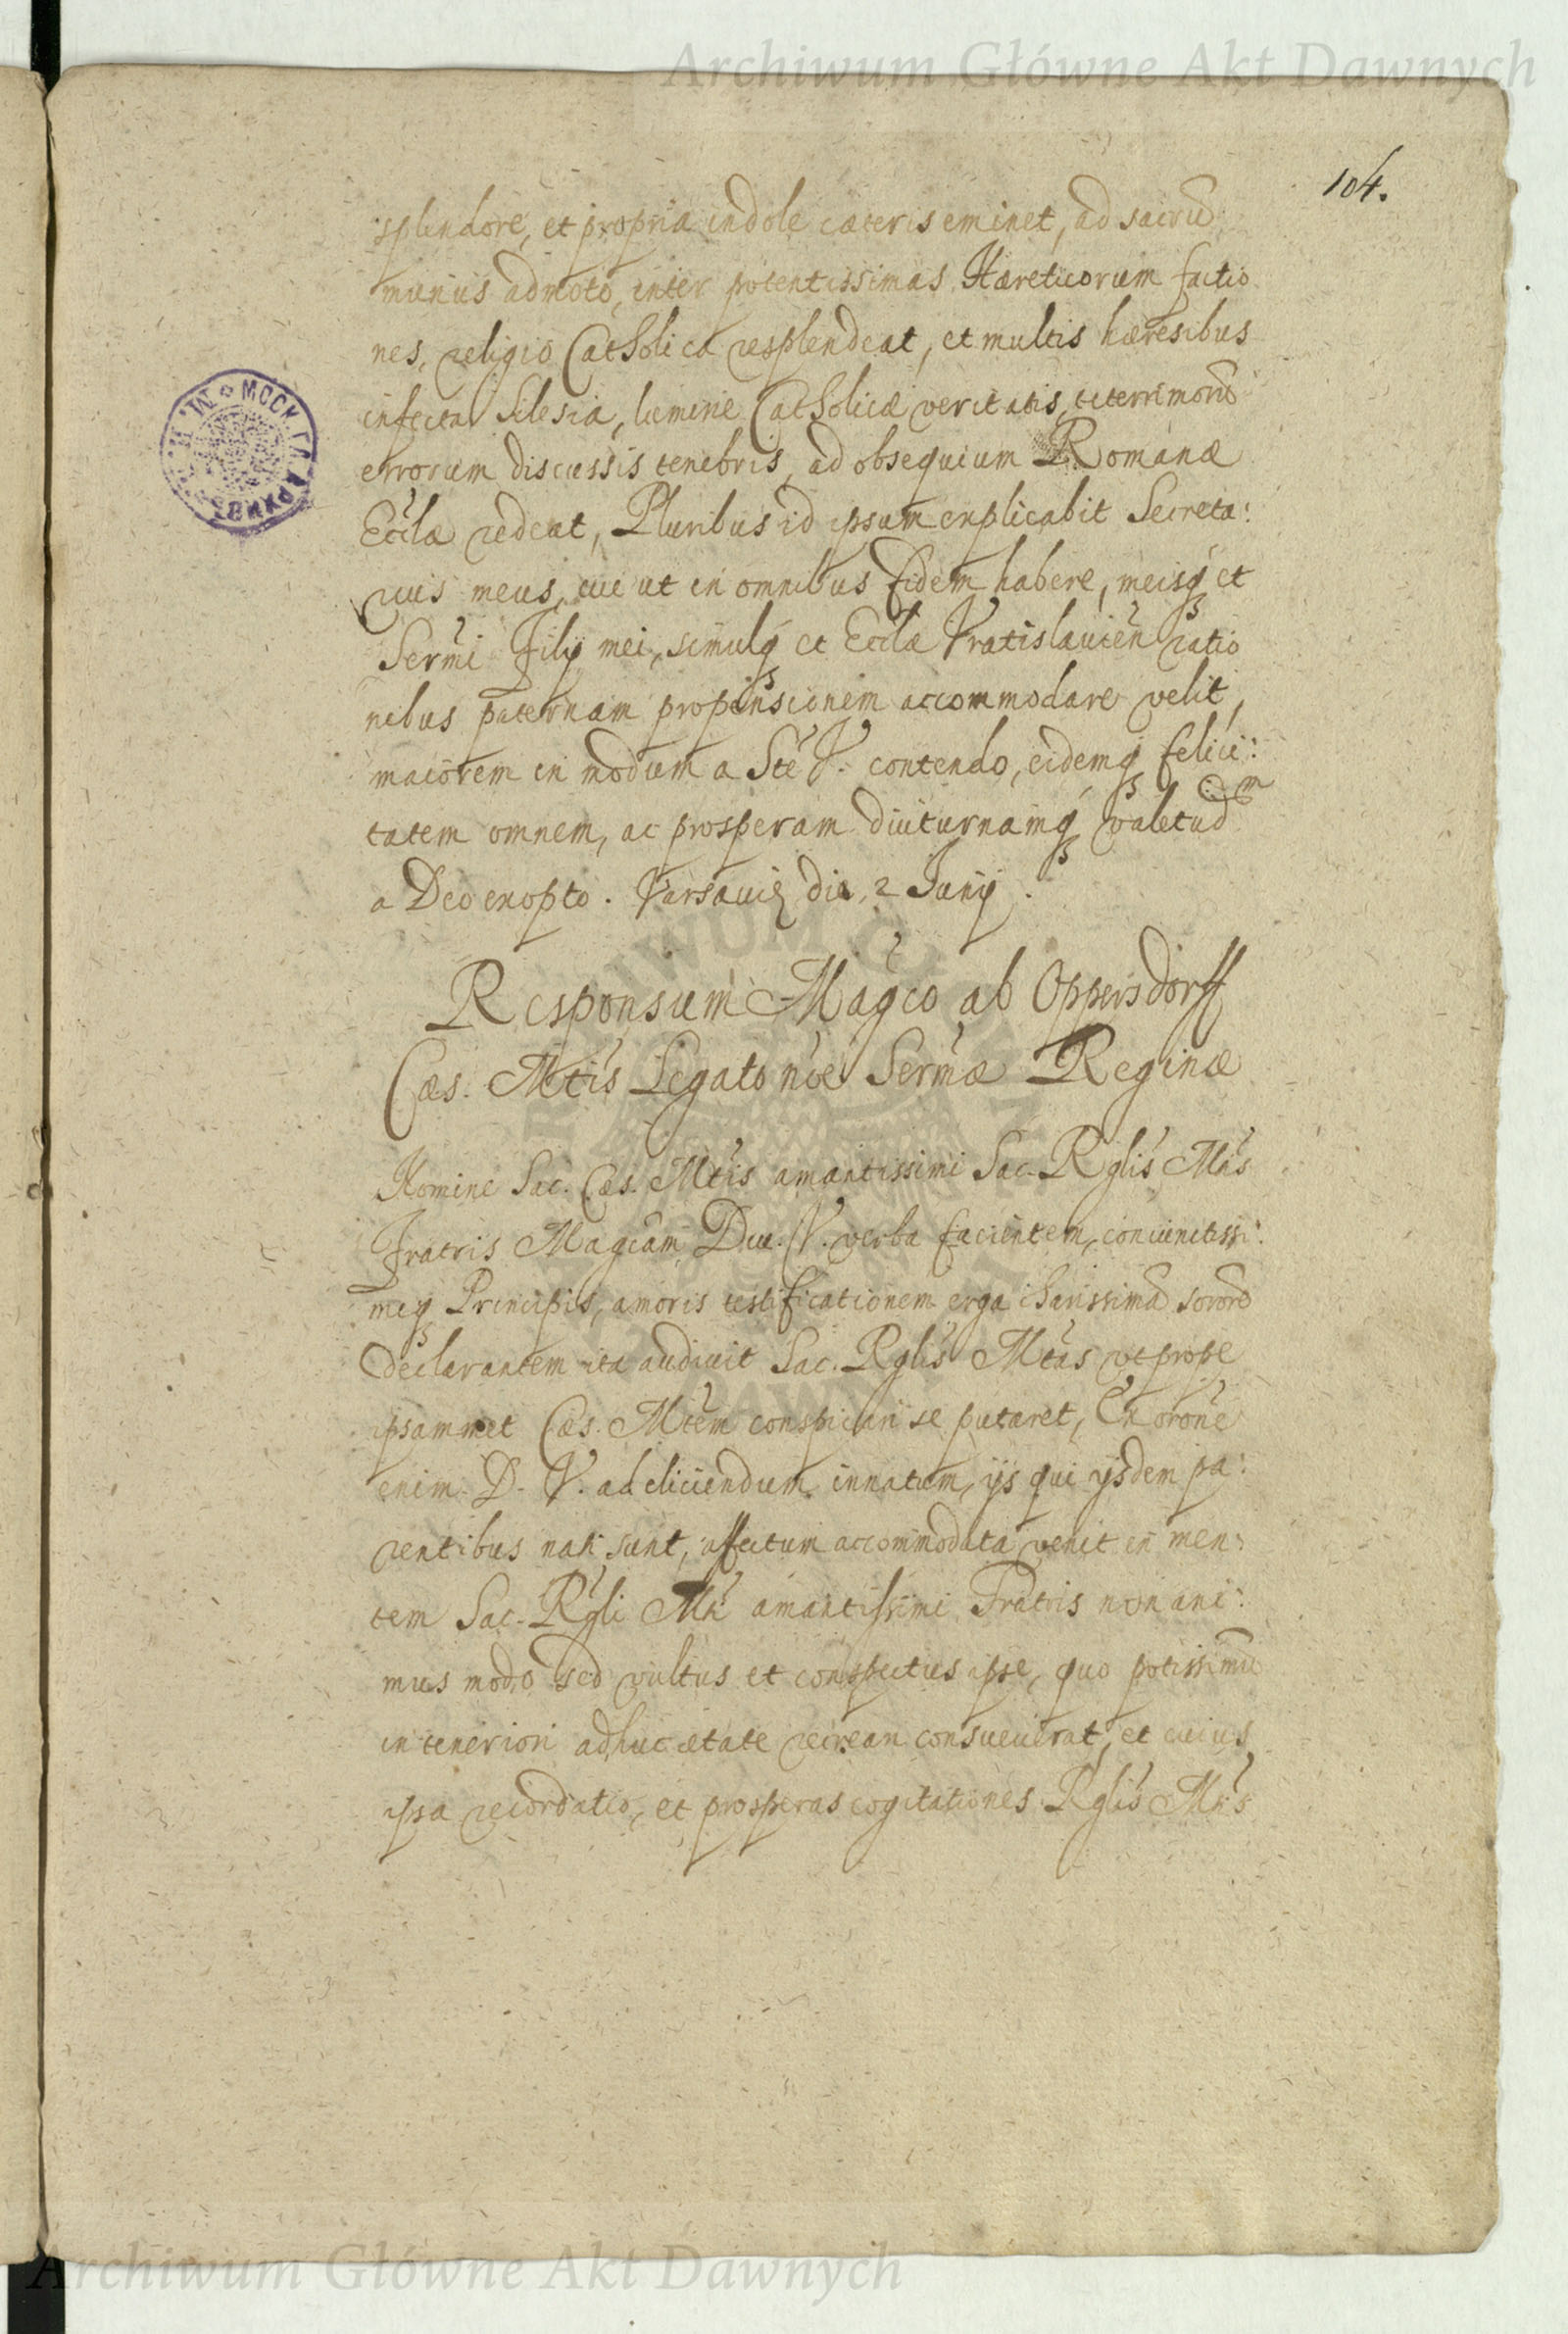 Archiwum Główne Akt Dawnych
104.
splendore, et propria indole cæteris eminet, ad sacrũ
munus admoto, inter potentissimas Hæreticorum factio
nes, religio Catholica resplendeat, et multis hæresibus
infecta Silesia, lumine Catholicæ veritatis, teterrimorũ
errorum discussis tenebris, ad obsequium Romanæ
Ecclæ redeat, Pluribus id ipsum explicabit Secreta:
rius meus, cui ut in omnibus fidem habere, meisq̃ et
Sermi Filij mei, simulq̃ et Ecclæ Vratislauien ratio
nibus paternam propensionem accommodare velit,
maiorem in modum a Ste V. contendo, eidemq̃ felici:
tatem omnem, ac prosperam diuturnamq̃ valetud:m
a Deo exopto. Varsauię die, 2 Junij.
Responsum Magco ab Oppersdorff
Cæs. Mtis Legato noie Sermæ Reginæ
Nomine Sac. Cæs. Mttis amantissimi Sac. Rglis Mtis
Fratris Magcam Dui. V. verba facientem, coniunctissi:
miq̃ Principis, amoris testificationem erga charissimã sororẽ
declarantem ita audiuit Sac. Rglis Mtas ut prope
ipsammet Cæs. Mtem conspicari se putaret, Ex orone
enim D. V. ad eliciendum innatum, ijs qui ijsdem pa:
rentibus nati sunt, affectum accommodata venit in men:
tem Sac. Rgli Mti amantissimi Fratris non ani:
mus modo sed vultus et conspectus ipse, quo potissimũ
in teneriori adhuc ætate recreari consueuerat, et cuius
ipsa recordatio, et prosperas cogitationes Rglis Mtis
Archiwum Główne Akt Dawnych